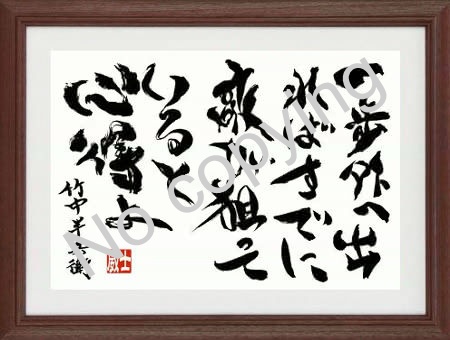 一歩外へ出
ればすでに
敵が狙って
いると
心得よ
竹中半兵衛
No copying